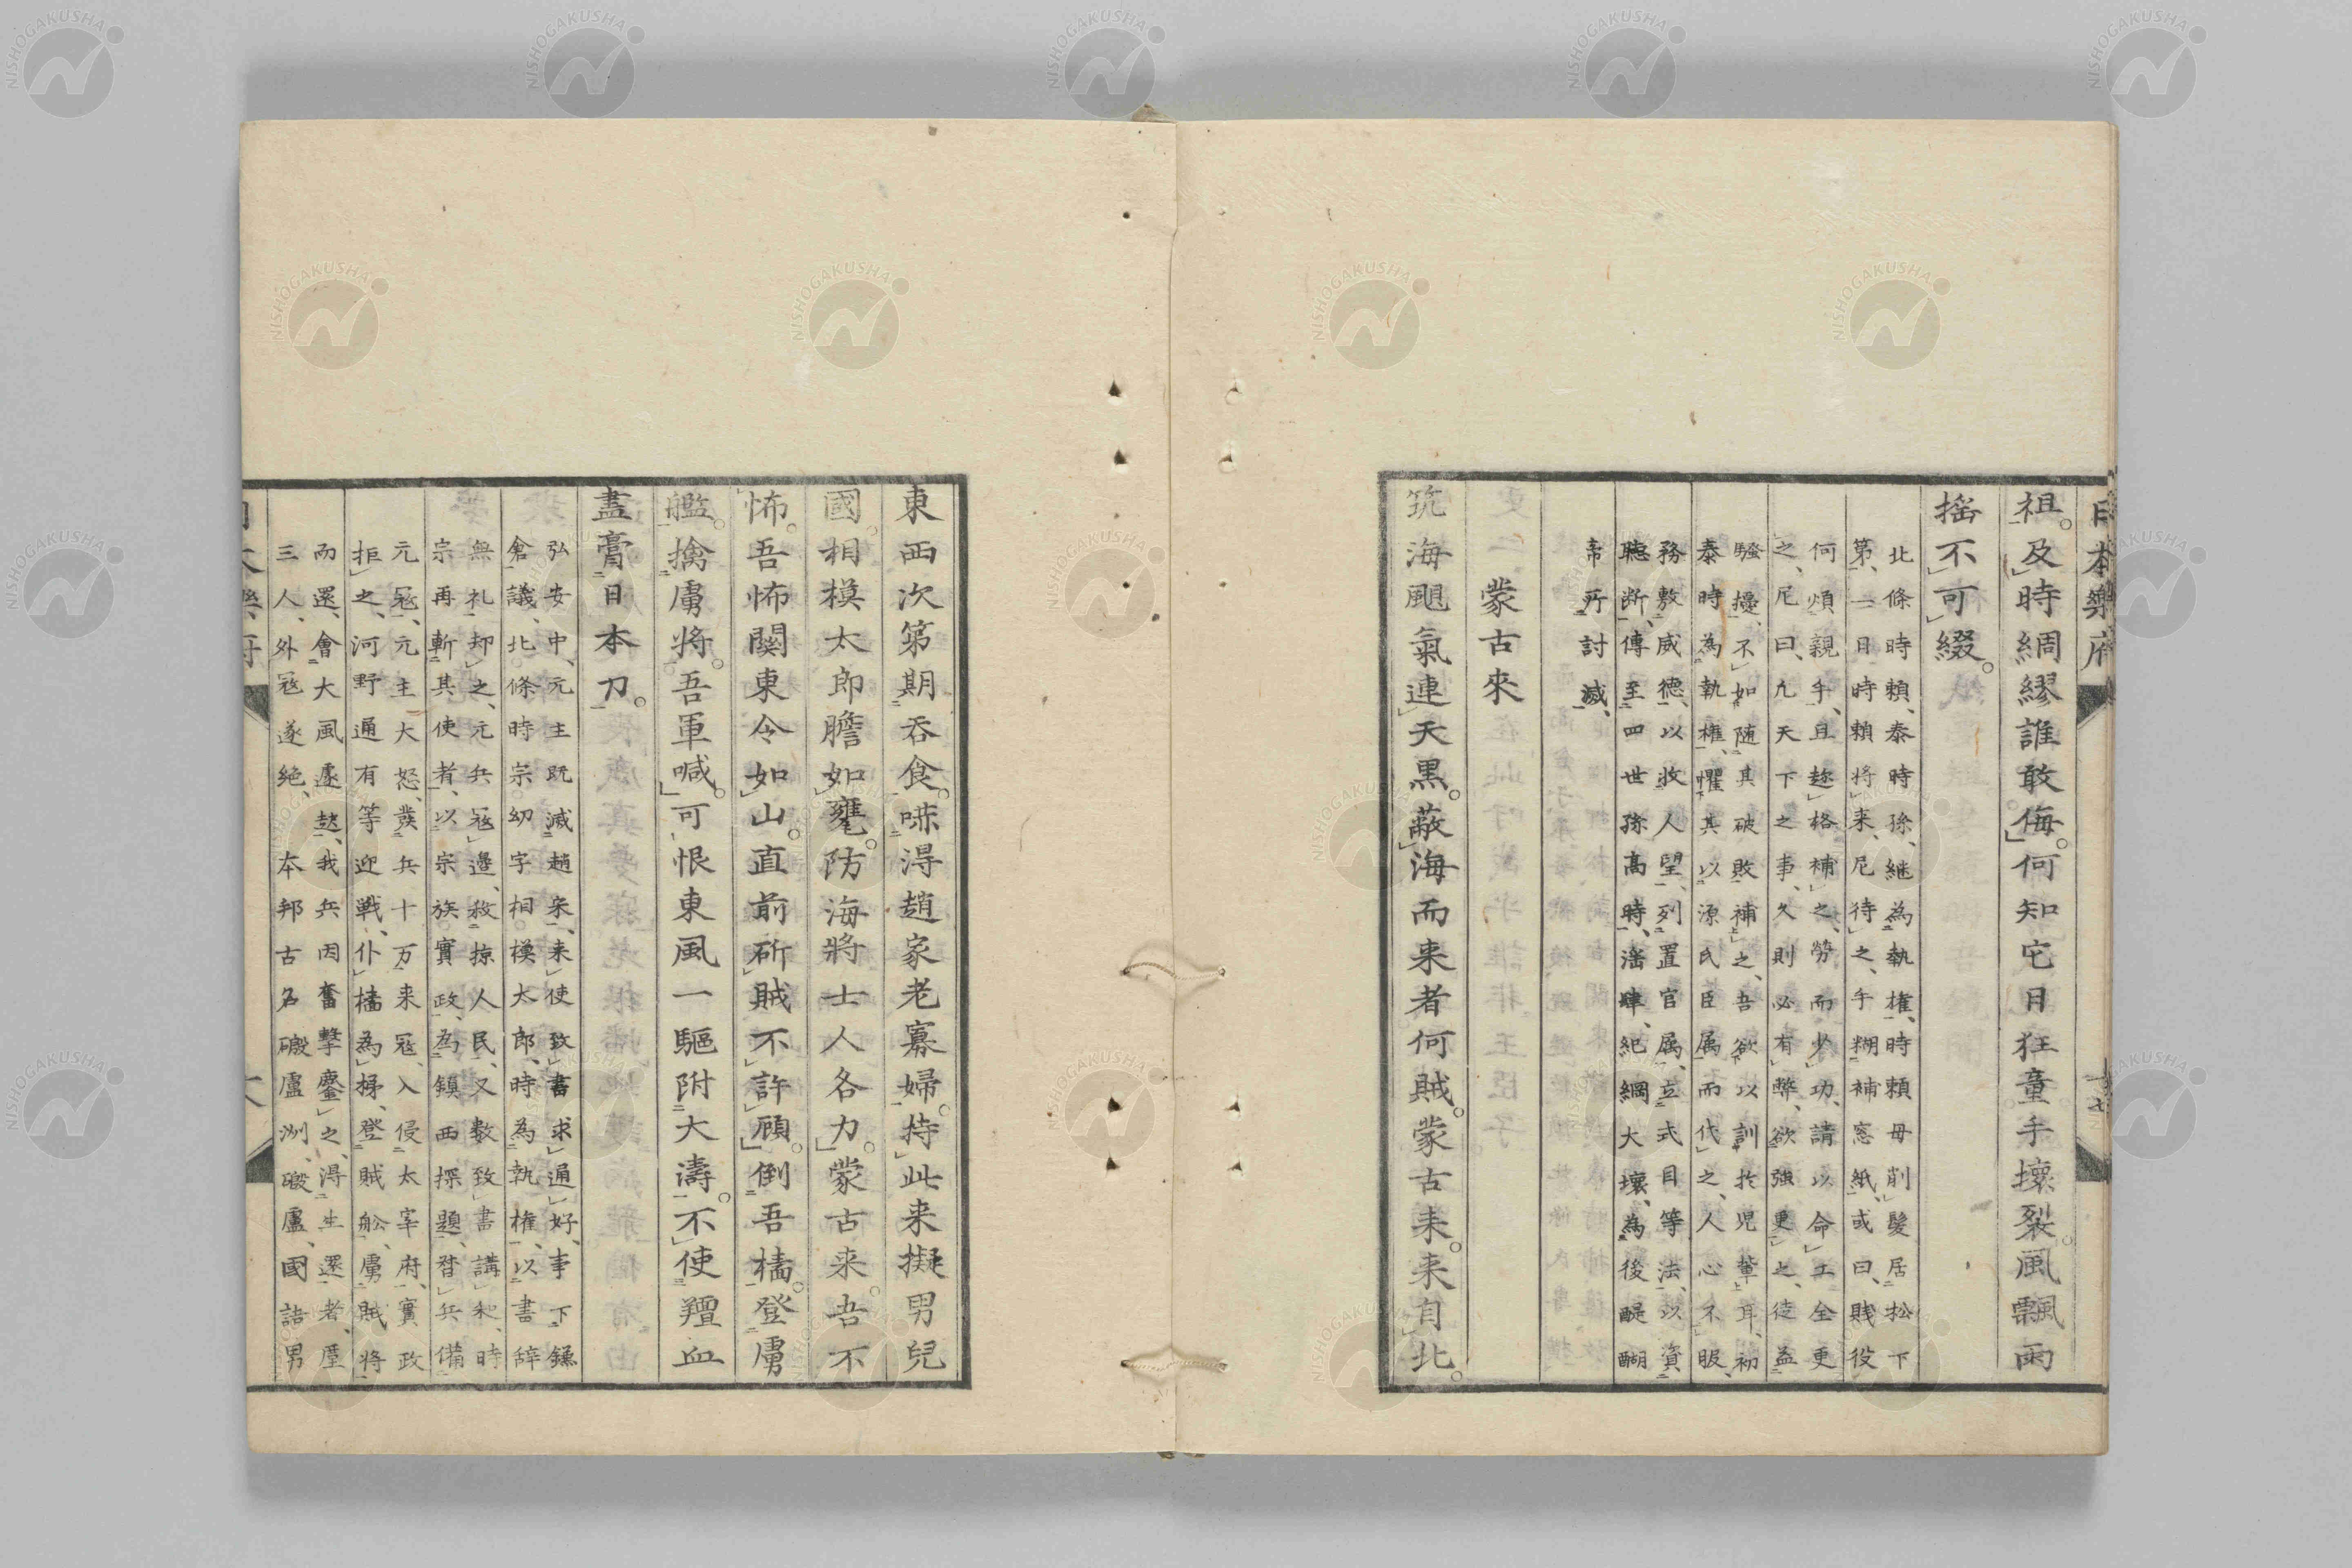 日本樂府
祖。及時綢繆誰敢侮。何知它日狂童手壞裂。風飄雨
搖不可綴。
北條時頼、泰時孫、継為執權、時頼母削髮居松下
第、一日時頼將来、尼待之、手糊補窓紙、或曰、賤役
何煩親手、且趂格補之、勞而少功、請以命工全更
之、尼曰、凢天下之事、久則必有弊、欲強更之、徒益
騷擾、不如随其破敗補之、吾欲以訓於児輩耳、初
泰時為執權、懼其以源氏臣属而代之、人心不服、
務敷威德、以收人望、列置官属、立式目等法、以資
聴断、傳至四世孫高時、滛肆、紀綱大壞、為後醍醐
帝所討滅、
蒙古來
筑海颶氣連天黒。蔽海而来者何賊。蒙古来。来自北。
東西次第期吞食。嚇得趙家老寡婦。持此来擬男兒
國。相模太郎膽如甕。防海將士人各力。蒙古来。吾不
怖。吾怖關東令如山。直前斫賊不許顧。倒吾檣。登虜
艦。擒虜將。吾軍喊。可恨東風一驅附大濤。不使羶血
盡膏日本刀。
弘安中、元主既滅趙宋、来使致書求通好、事下鎌
倉議、北條時宗幼字相模太郎、時為執權、以書辞
無礼却之、元兵冦邉、殺掠人民、又数致書講和、時
宗再斬其使者、以宗族實政、為鎮西探題、督兵備
元冦、元主大怒、發兵十万来冦、入侵太宰府、實政
拒之、河野通有等迎戰、仆檣為梯、登賊舩、虜賊將
而還、會大風遽起、我兵因奮擊鏖之、得生還者、厪
三人、外冦遂絶、本邦古名磤盧洲、磤盧、國詰男
日本樂府